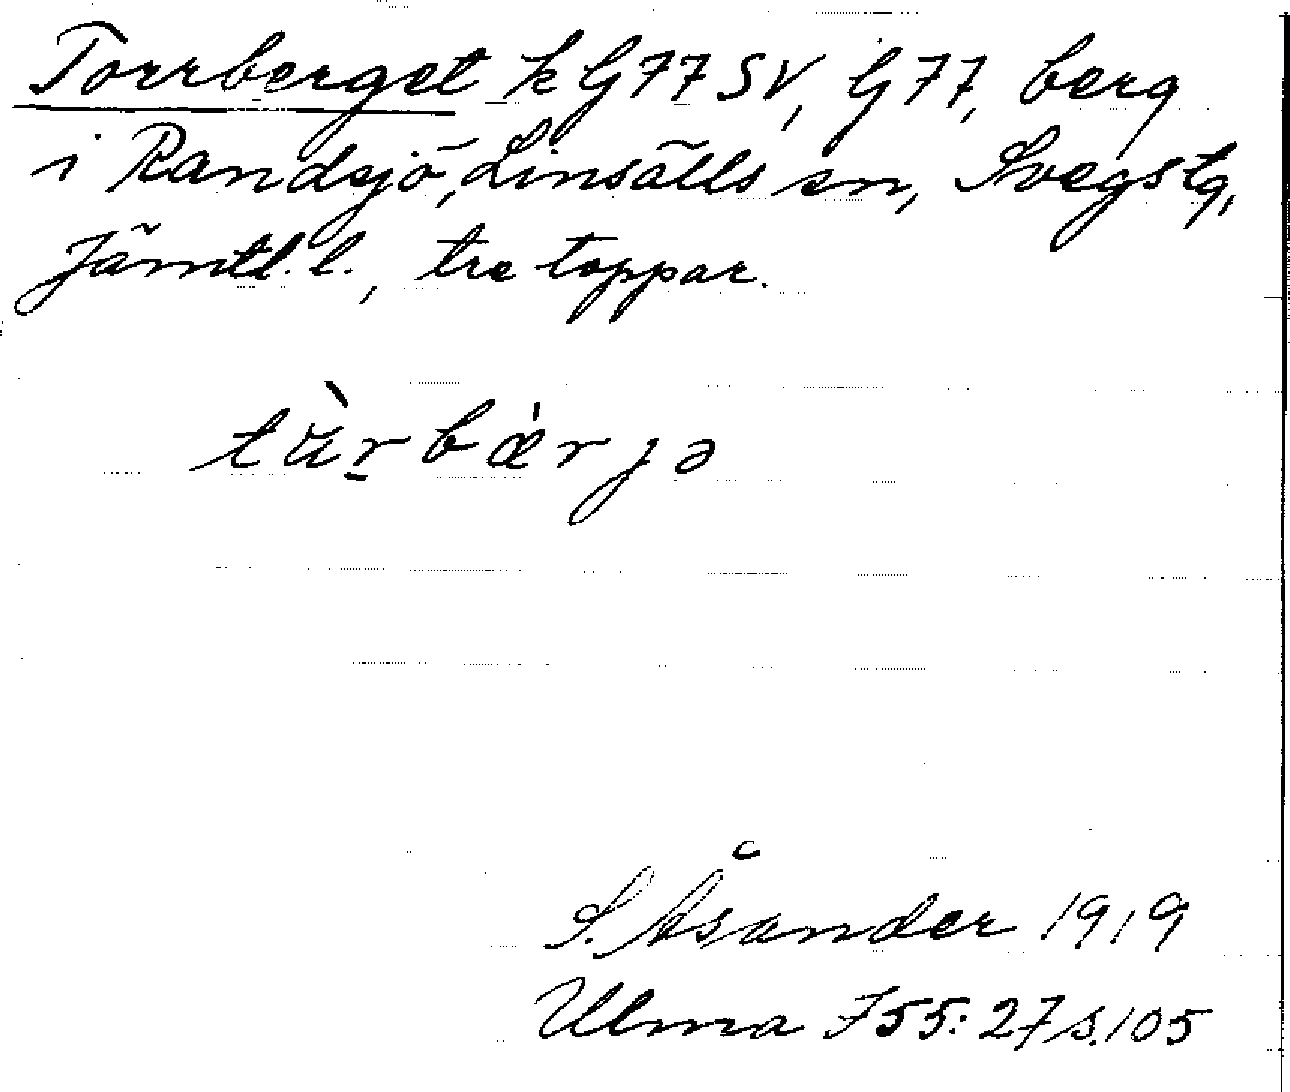 Torrberget k G77SV, G77, berg
i Randsjö, Linsälls sn, Svegs tg,
Jämtl. l., tre toppar.
tùr̲bǽrjə
S. Åsander 1919
Ulma 755:27 s. 105